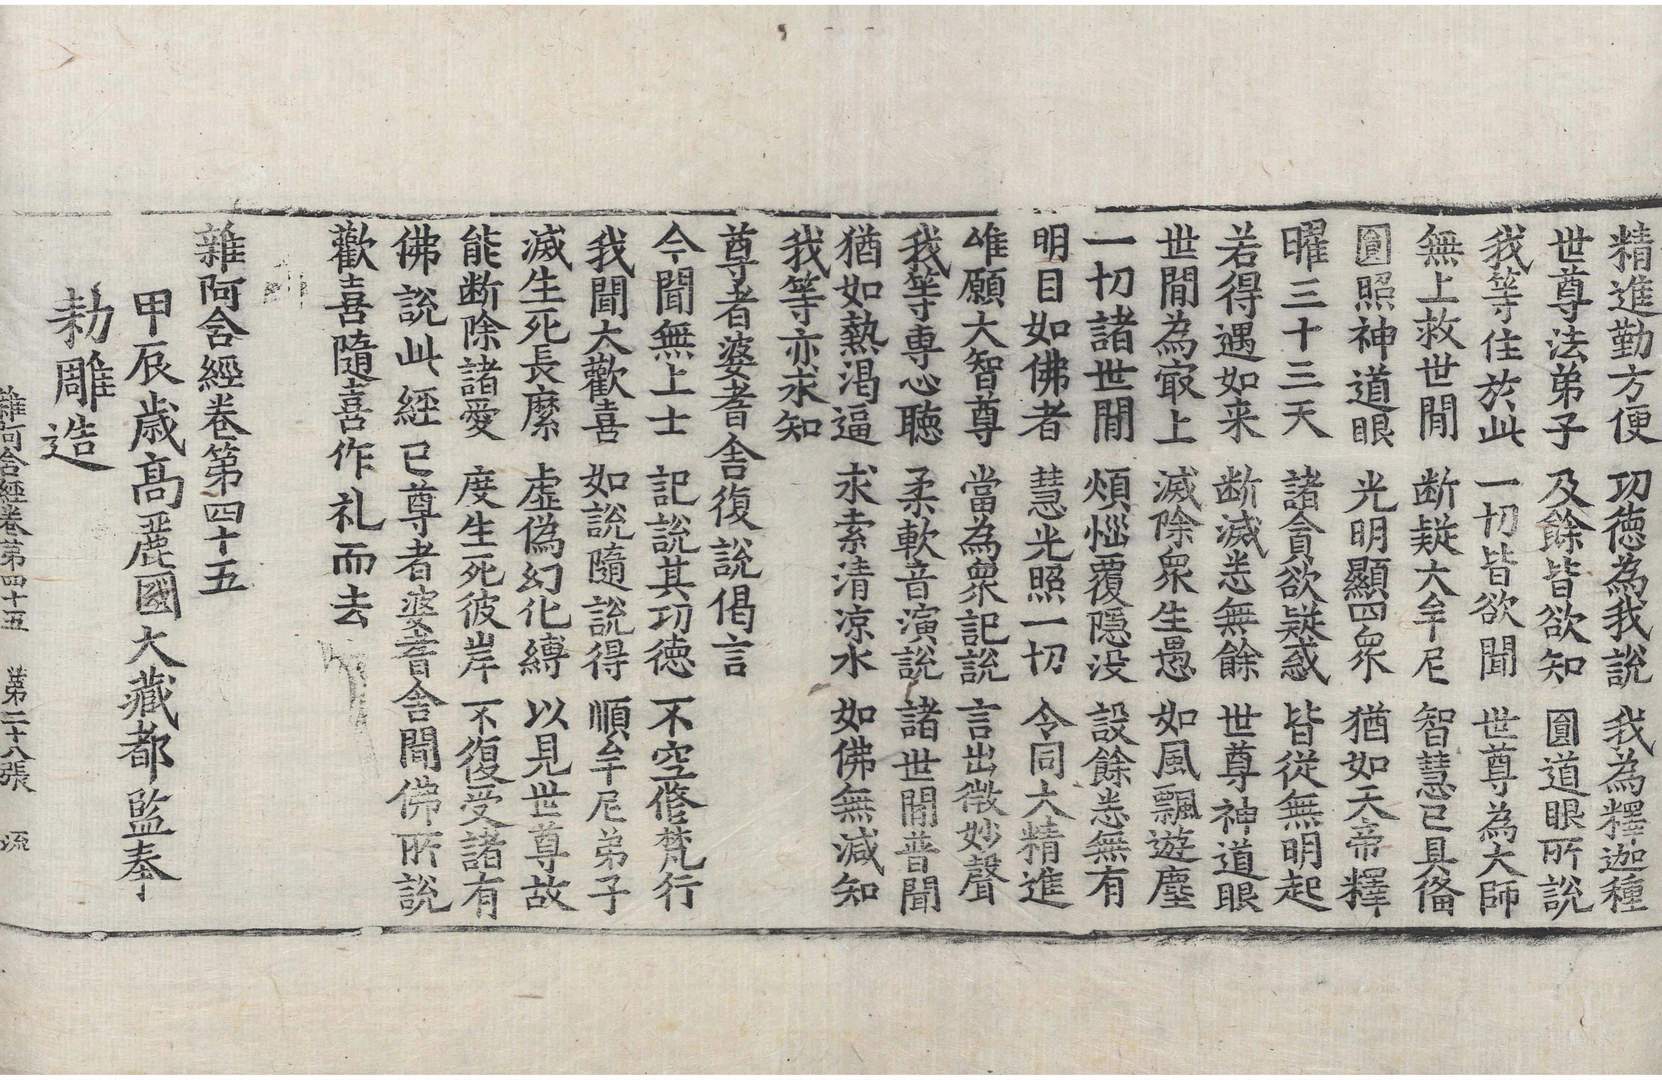 精進勤方便 功徳為我說 我為釋迦種
世尊法弟子 及餘皆欲知 圎道眼所說
我等住於此 一切皆欲聞 世尊為大師
無上救世閒 断疑大牟尼 智慧已具俻
圎照神道眼 光明顯四衆 猶如天帝釋
曜三十三天 諸貪欲疑惑 皆從無明起
若得遇如来 断滅悉無餘 世尊神道眼
世閒為㝡上 滅除衆生愚 如風飄遊塵
一切諸世閒 煩惱覆隱没 設餘悉無有
明目如佛者 慧光照一切 令同大精進
唯願大智尊 當為衆記說 言出微妙聲
我等専心聴 柔軟音演說 諸世閒普聞
猶如熱渇逼 求索清凉水 如佛無減知
我等亦求知
尊者婆耆舎復說偈言
今聞無上士 記說其功徳 不空修梵行
我聞大歡喜 如說隨說得 順牟尼弟子
滅生死長縻 虛偽幻化縛 以見世尊故
能断除諸愛 度生死彼岸 不復受諸有
佛說此經已尊者婆耆舎聞佛所說
歡喜隨喜作礼而去
雜阿含經卷第四十五
甲辰歲髙麗國大藏都監奉
勑雕造
雜阿含經卷第四十五 第二十八張 流